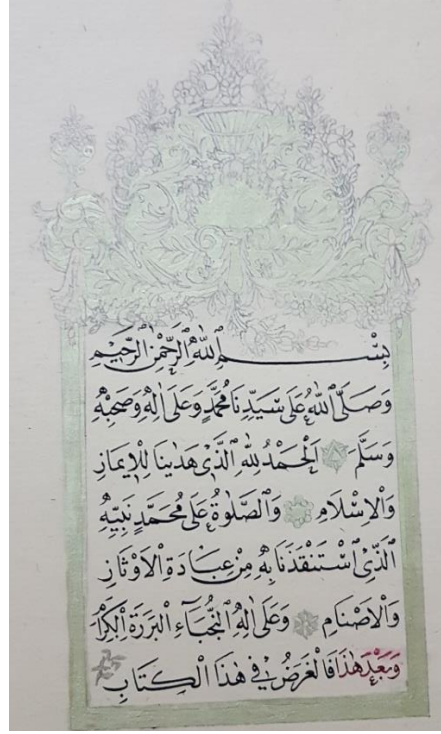 بِسْمِ اللّٰهِ الرَّحْمٰنِ الرَّحِيمِ
وَصَلَّى اللّٰهُ عَلٰى سَيِّدِنَا مُحَمَّدٍ وَعَلٰى اٰلِهٖ وَصَحْبِهٖ
وَسَلَّمَ اَلْحَمْدُ لِلّٰهِ الَّذِى هَدٰينَا لِلْاِيمَانِ
وَالْاِسْلَامِ وَالصَّلٰوةُ عَلٰى مُحَمَّدٍ نَبِيِّهِ
الَّذِى اسْتَنْقَذَنَا بِهٖ مِنْ عِبَادَةِ الْاَوْثَانِ
وَالْاَصْنَامِ وَعَلٰى اٰلِهِ النُّجَبَاءِ الْبَرَرَةِ الْكِرَامِ
وَبَعْدَ هٰذَا فَالْغَرَضُ فِى هٰذَا الْكِتَابِ